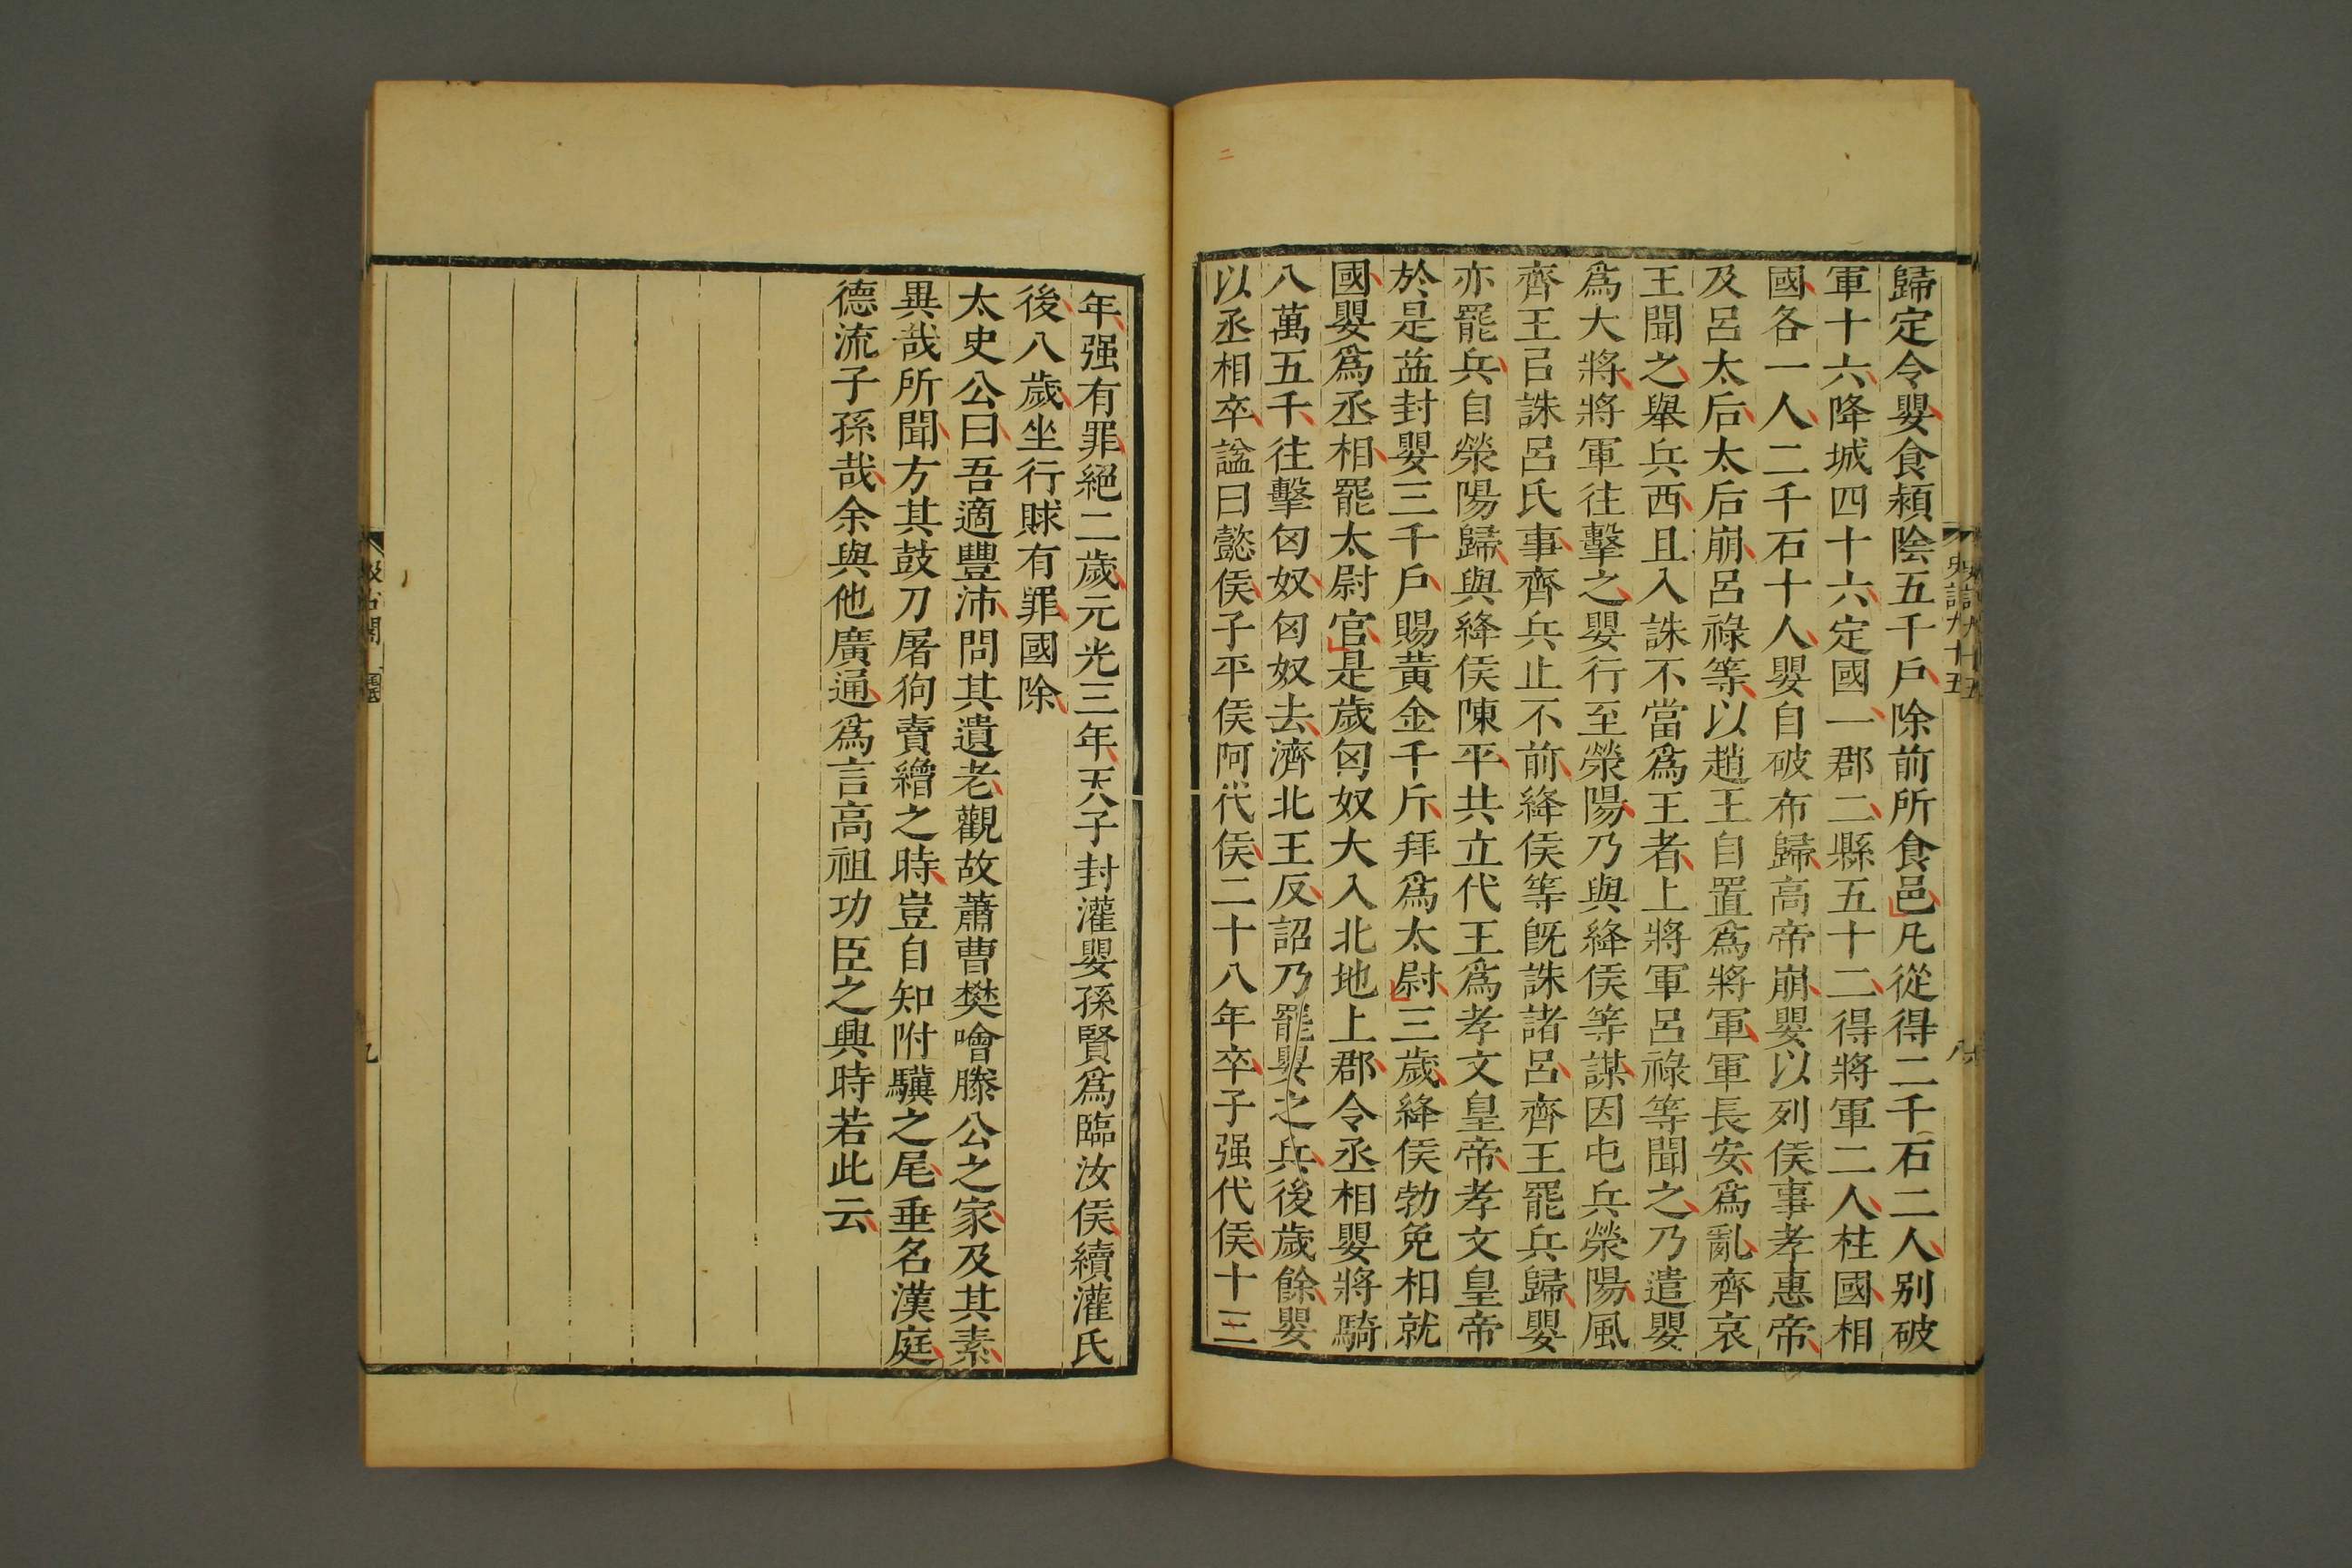 史記九十五
八
歸定令嬰食頴陰五千戶除前所食邑凡從得二千石二人别破
軍十六降城四十六定國一郡二縣五十二得將軍二人柱國相
國各一人二千石十人嬰自破布歸高帝崩嬰以列侯事孝惠帝
及呂太后太后崩呂祿等以趙王自置爲將軍軍長安爲亂齊哀
王聞之舉兵西且入誅不當爲王者上將軍呂祿等聞之乃遣嬰
爲大將將軍往擊之嬰行至滎陽乃與絳侯等謀因屯兵滎陽風
齊王㠯誅呂氏事齊兵止不前絳侯等旣誅諸呂齊王罷兵歸嬰
亦罷兵自滎陽歸與絳侯陳平共立代王爲孝文皇帝孝文皇帝
於是益封嬰三千戶賜黃金千斤拜爲太尉三歲絳侯勃免相就
國嬰爲丞相罷太尉官是歲匈奴大入北地上郡令丞相嬰將騎
八萬五千往擊匈奴匈奴去濟北王反詔乃罷嬰之兵後歲餘嬰
以丞相卒諡曰懿侯子平侯阿代侯二十八年卒子强代侯十三
年强有罪絕二歲元光三年天子封灌嬰孫賢爲臨汝侯續灌氏
後八歲坐行賕有罪國除
太史公曰吾適豐沛問其遺老觀故蕭曹樊噲滕公之家及其素
異哉所聞方其鼓刀屠狗賣繒之時豈自知附驥之尾垂名漢庭
德流子孫哉余與他廣通爲言高祖功臣之興時若此云
九